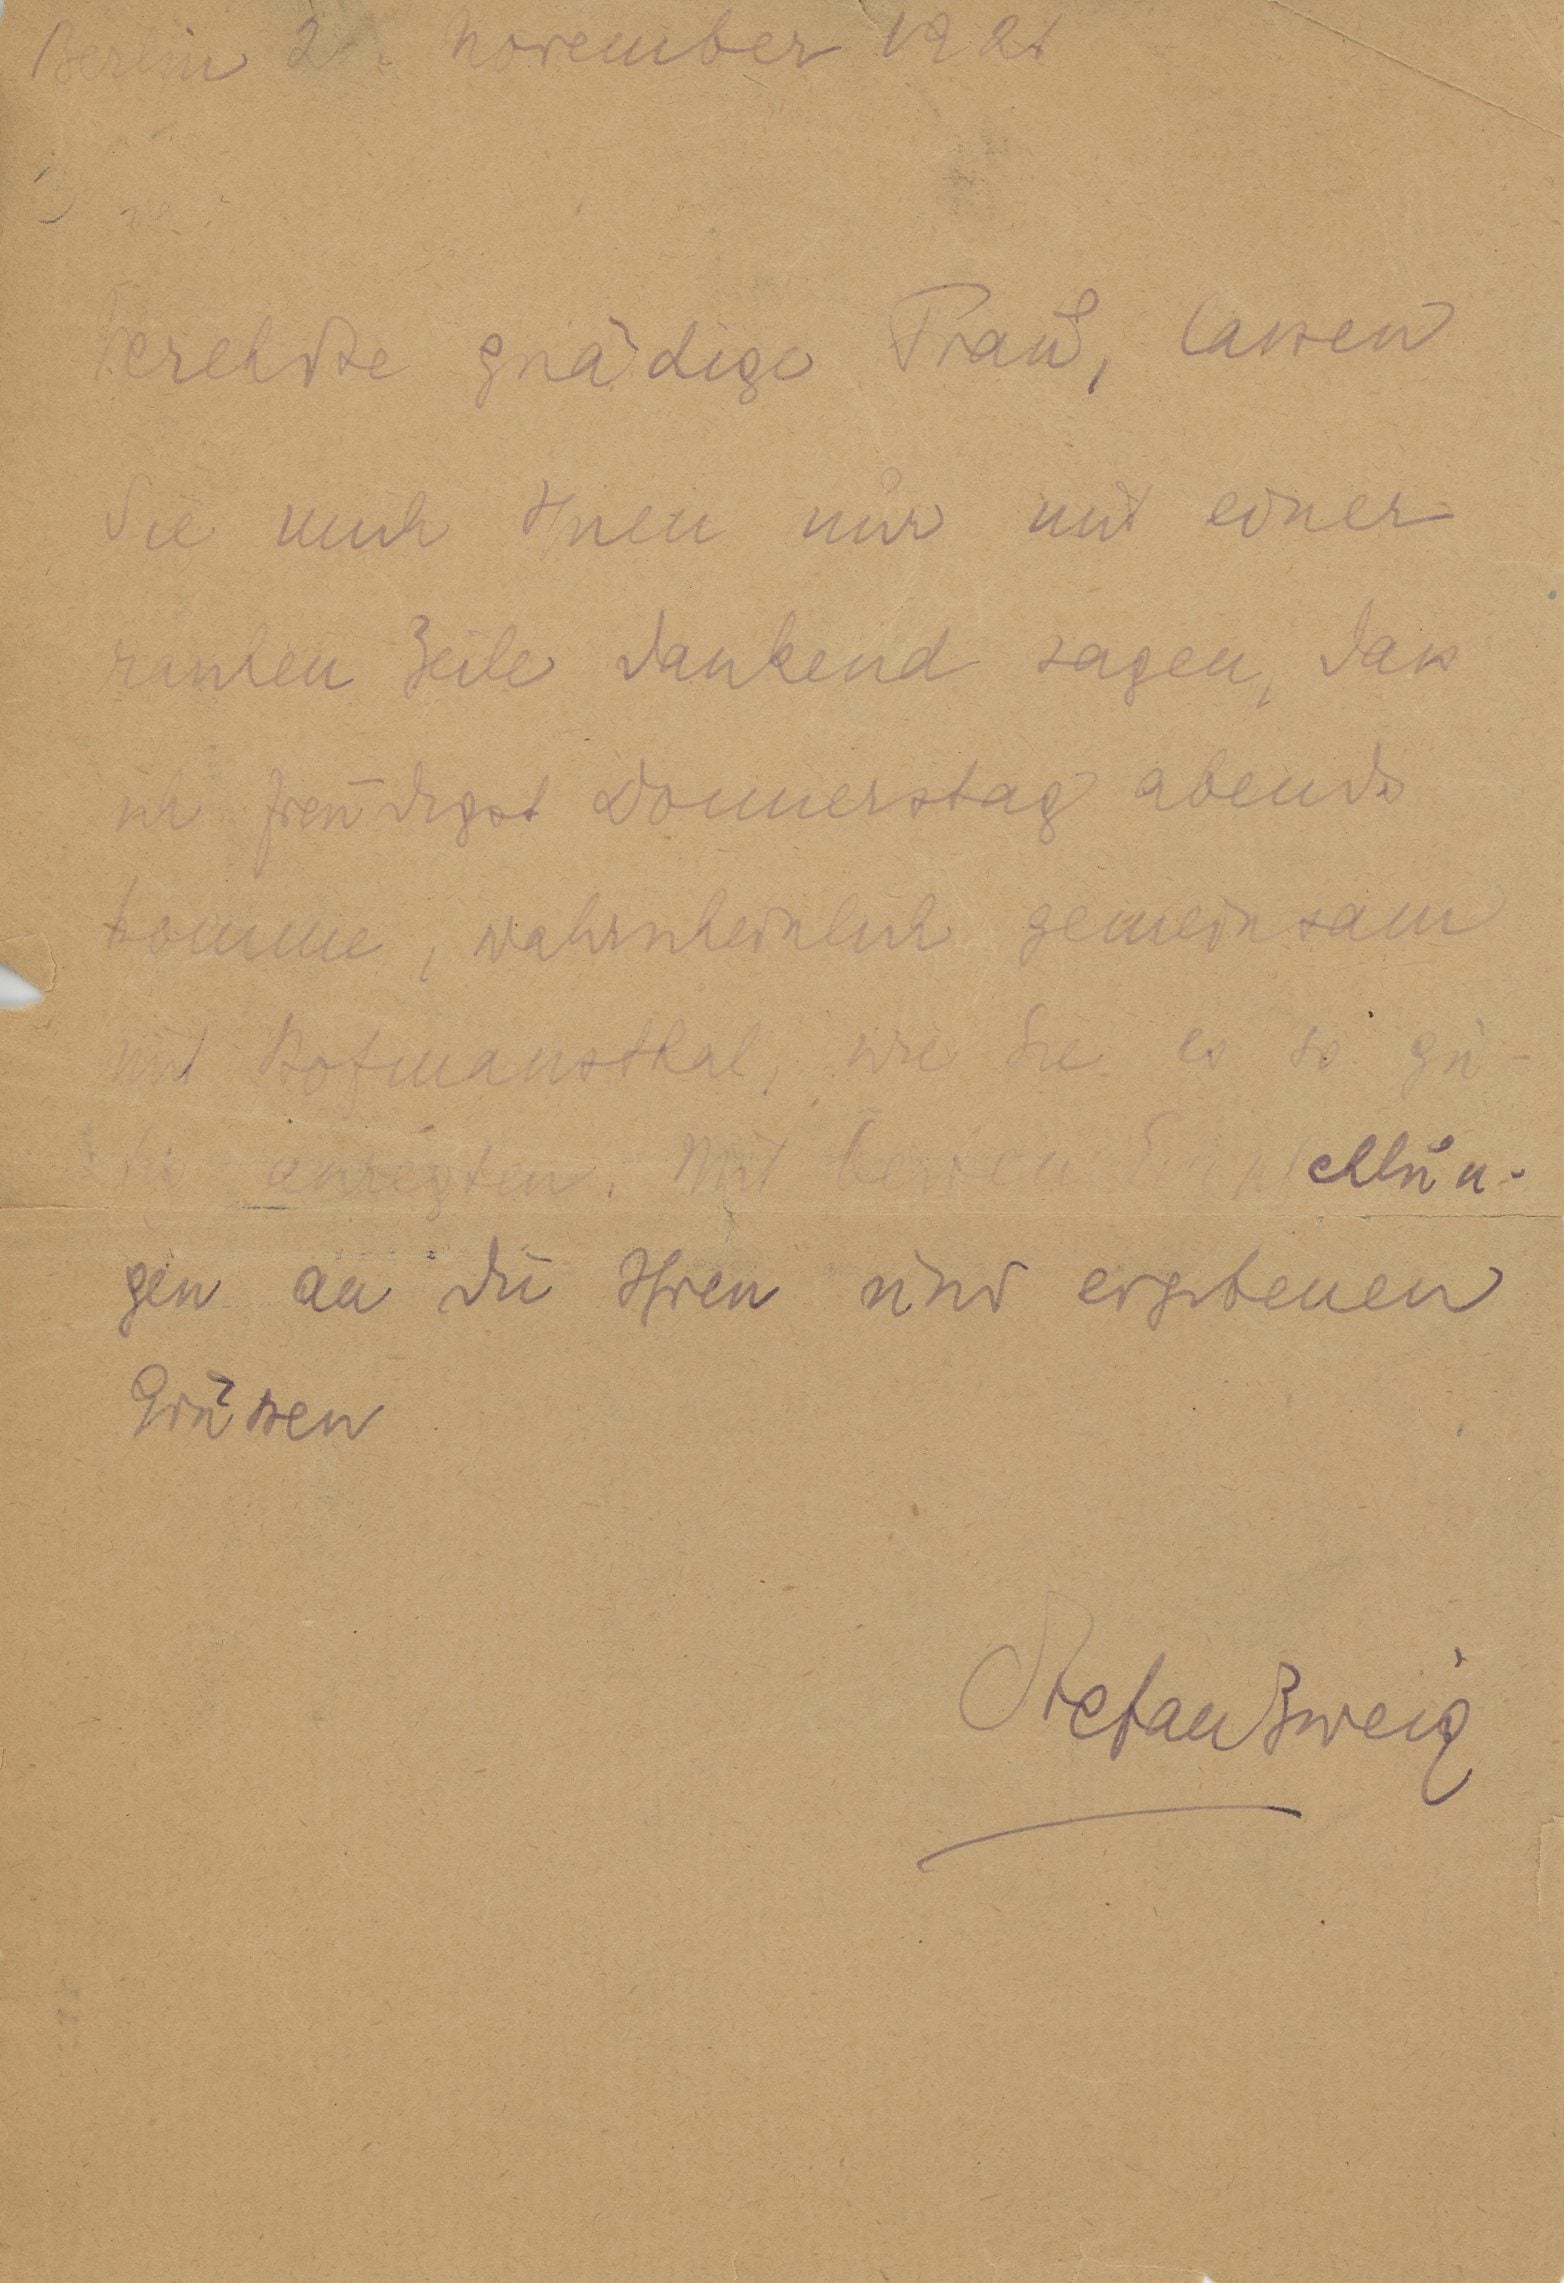 Berlin 2 . November 1921
Verehrte gnädige Frau, lassen
Sie mich Ihnen nur mit einer
raschen Zeile dankend sagen, dass
ich freudigst Donnerstag abends
komme, wahrscheinlich gemeinsam
mit Hofmannsthal, wie Sie es so gü-
tig anregten. Mit besten Empfehlun-
gen an die Ihren und ergebenen
Grüssen
Stefan Zweig